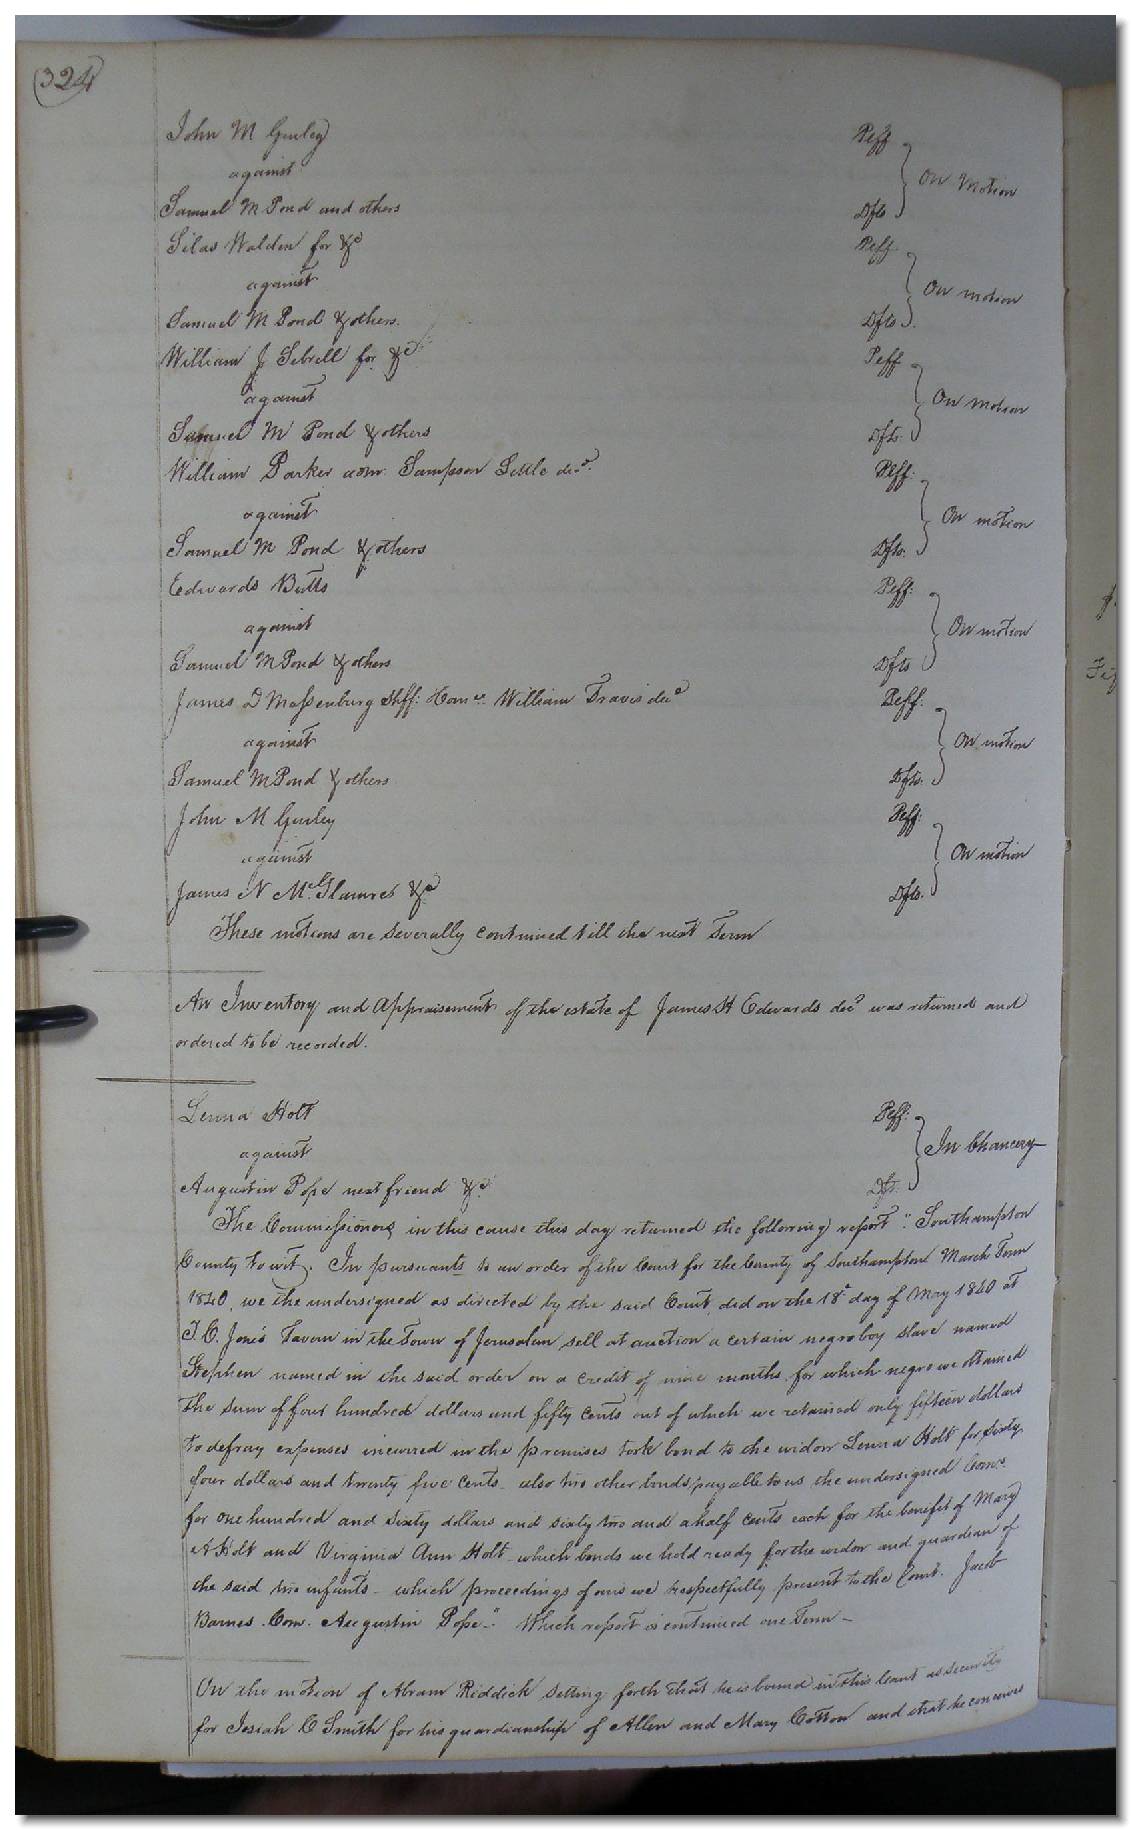 324
John M Gurley Plff
against } On Motion
Samuel M Pond and others Dfts
Silas Walden for &c Plff
against } On motion
Samuel M Pond & others. Dfts
William J Sebrell for &c Plff
against } On motion
Samuel M Pond & others Dfts
William Parker admr. Sampson decd. Plff:
against } On motion
Samuel M Pond & others Dfts.
Edwards Butts Plff:
against } On motion
Samuel M Pond & others Dfts
James D Massenburg Shff: William Travis decd Plff:
against } On motion
Samuel M Pond & others Dfts.
John M Gurley Plff:
against } On motion
James N &c Dfts.
These motions are severally continued till the next Term
An Inventory and Appraisement of the estate of James H Edwards decd was returned and
ordered to be recorded.
Lenna Holt Plff:
against } In Chancery
Augustin Pope next friend &c Dft.
The Commissioners in this cause this day returned the following report "Southampton
County to wit. In pursuants to an order of the Court for the County of Southampton March Term
1840, we the undersigned as directed by the said Court, did on the 18th day of May 1840 at
Tavern in the Town of Jerusalem sell at auction a certain negro boy slave named
Stephen named in the said order on a credit of nine months, for which negro we obtained
the sum of four hundred dollars and fifty cents out of which we retained only fifteen dollars
to defray expenses incurred in the premises took bond to the widow Lenna Holt for sixty
four dollars and twenty five cents also two other bonds payable to us the undersigned Coms
for one hundred and sixty dollars and sixty two and a half cents each for the benefit of Mary
A Holt and Virginia Ann Holt which bonds we hold ready for the widow and guardian of
the said two infants. which proceedings of ours we respectfully present to the Court. Jacob
Barnes. Com. Augustin Pope." Which report is continued one Term
On the motion of Abram Riddick setting forth that he is bound in this Court as security
for Josiah C Smith for his guardianship of Allen and Mary Cotton and that he conceives